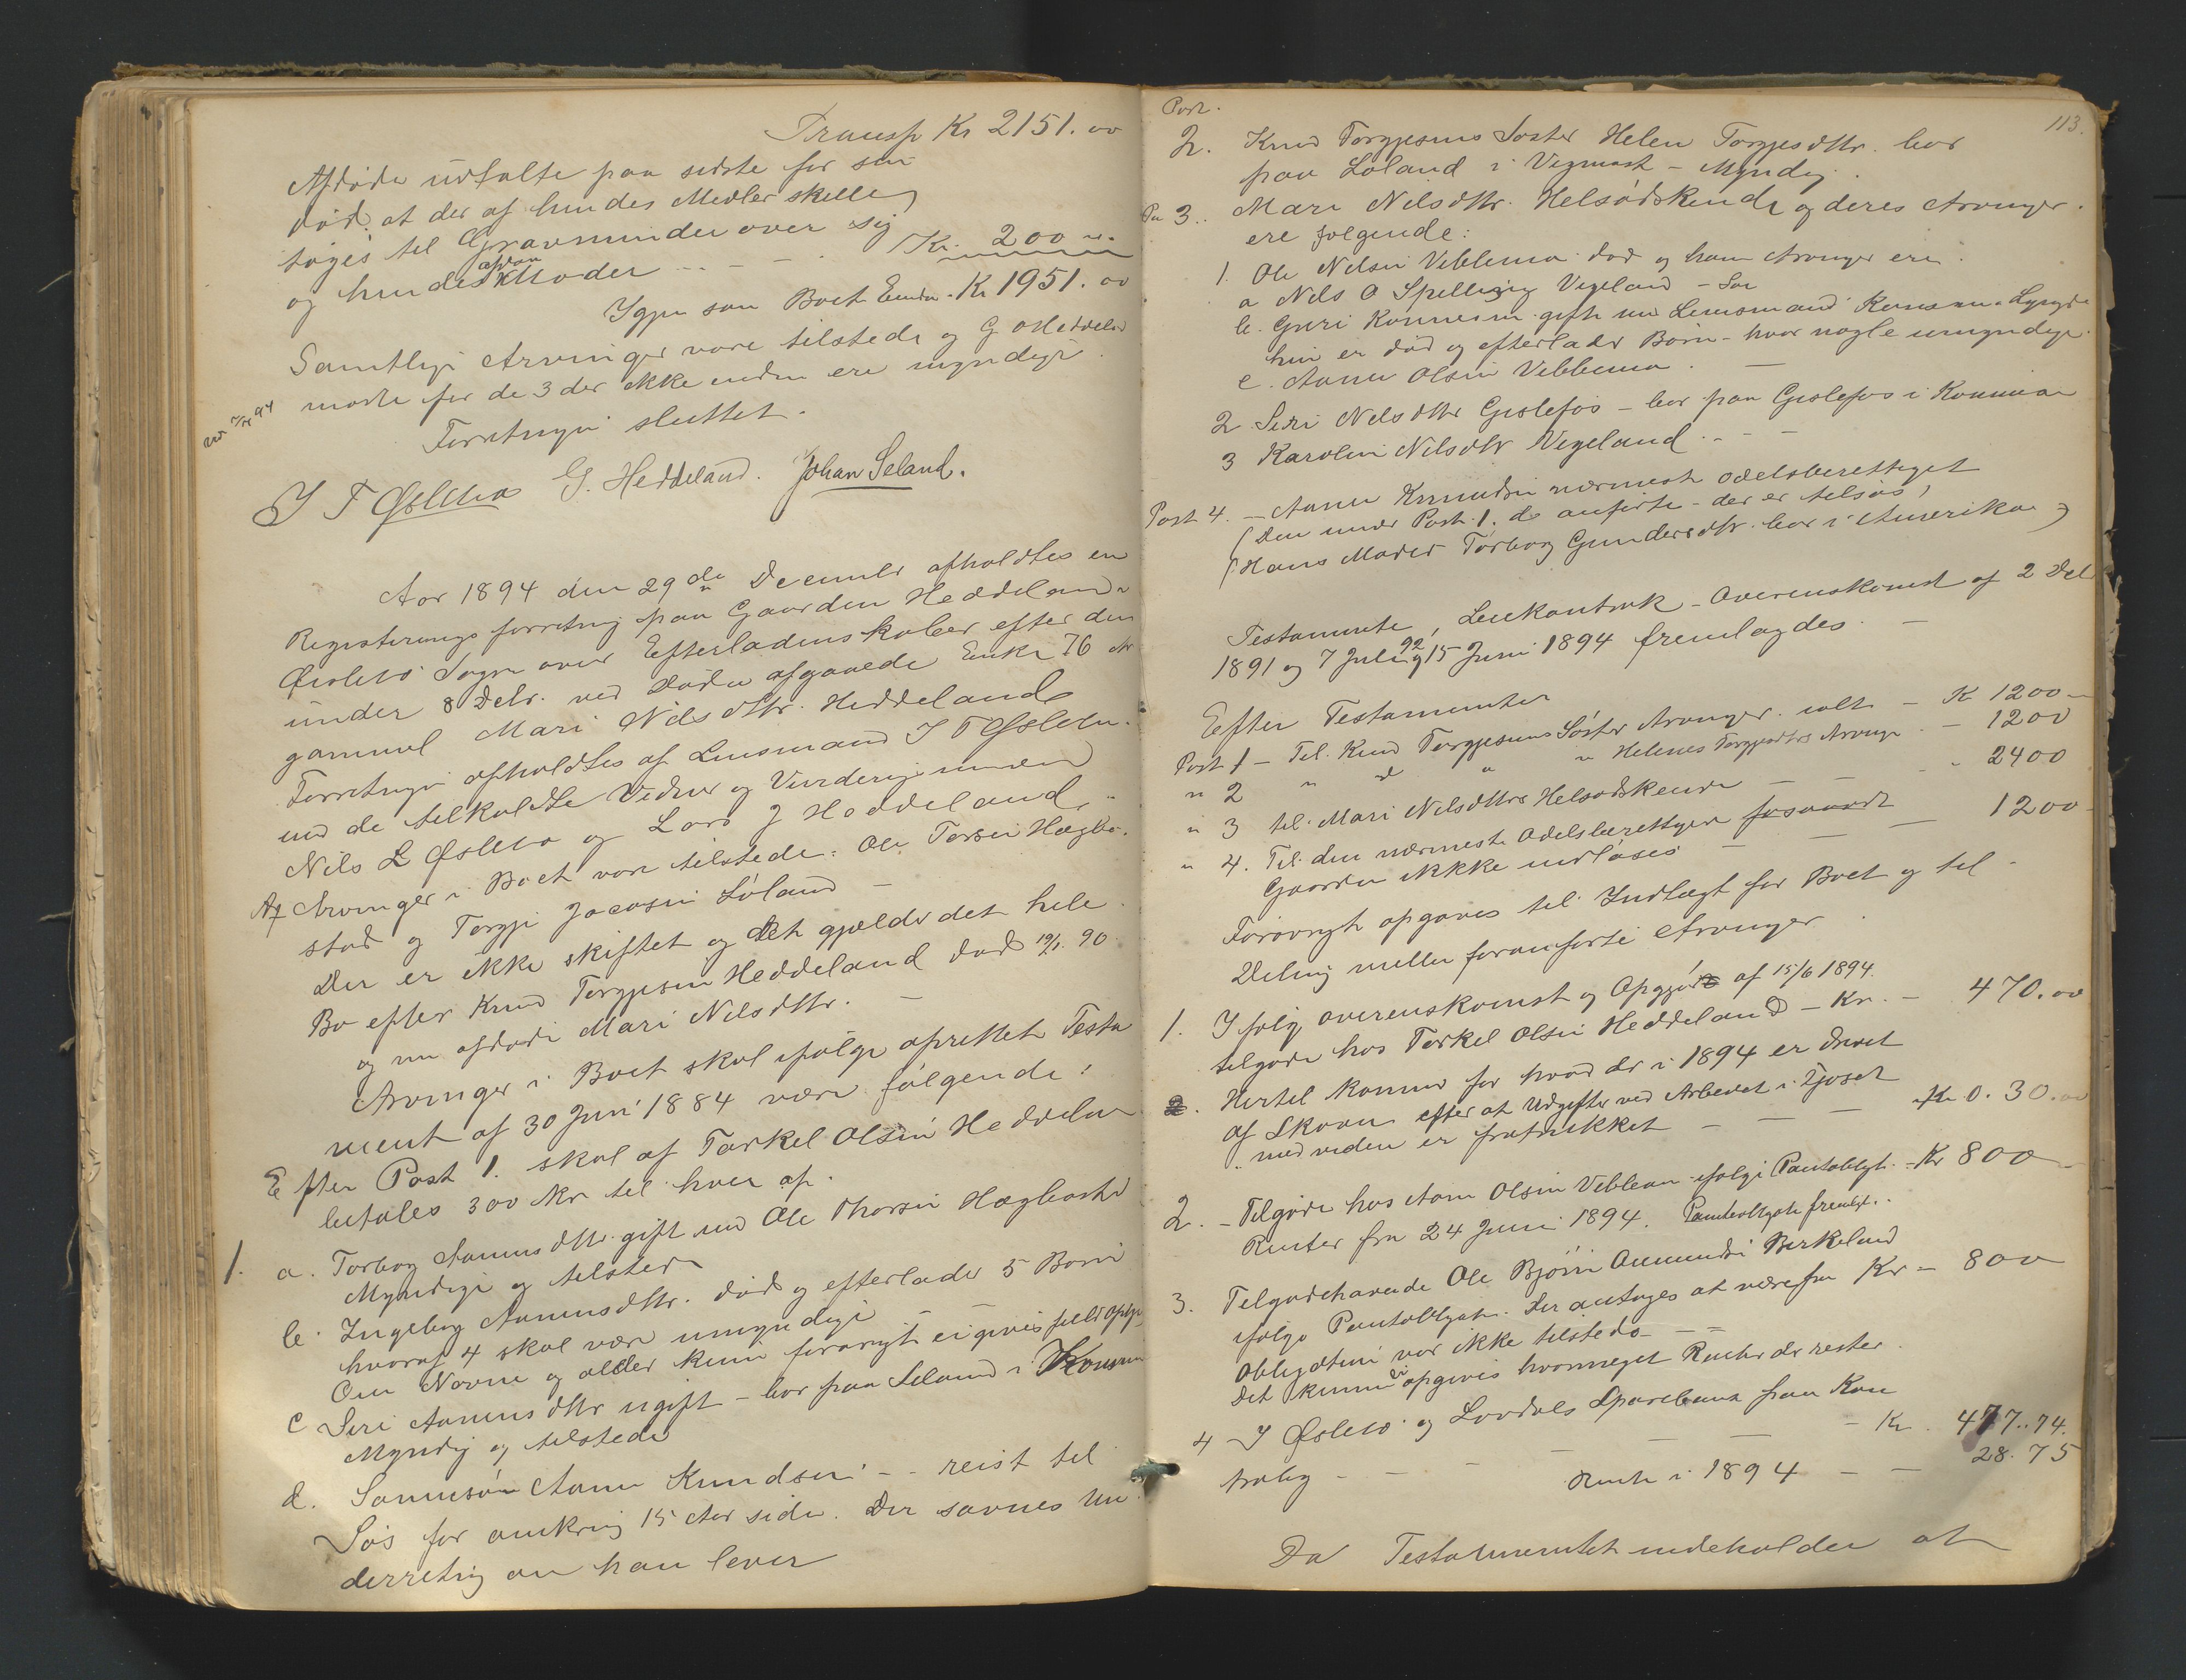 Transp Kr 2151.00
Afdøde udtalte paa sidste før sin
død, at der af hendes Midler skulle
tages til Gravminder over sig
og hendes afdøde Moder - - - Kr. 200 "
Igjen som Boets Eiendom - Kr 1951.00
Samtlige Arvinger vare tilstede og G Heddeland
mødte for de 3 der ikke endnu ere myndige.
Forretnigen sluttet.
J T Øslebø G. Heddeland. Johan Seland.
Aar 1894 den 29de December afholdtes en
Registreringsforretnig paa Gaarden Heddeland i
Øslebø Sogn over Efterladenskaber efter den
under 8 Dcbr. ved Døden afgaaede Enke 76 Aar
gammel Mari Nilsdttr. Heddeland
Forretnigen afholdtes af Lensmand J T Øslebø
med de tilkaldte Vidner og Vurderigsmænd
Nils L Øslebø og Lars J Heddeland.
Af Arvinger i Boet vare tilstede: Ole Torsen Hægbo-
stad og Torgje Jacosen Løland -
Der er ikke skiftet og det gjælder det hele
Bo efter Knud Torgjesen Heddeland død 19/1. 90
og nu afdøde Mari Nilsdttr. -
Arvinger i Boet skal ifølge oprettet Testa
ment af 30 Juni 1884 være følgende:
Efter Post 1. skal af Tarkel Olsen Heddeland
betales 300 Kr til hver af.
1. a. Torborg Aanensdttr. gift med Ole Thorsen Hægbostad
Myndige og tilstede
b. Ingeborg Aanensdttr. død og efterlader 5 Børn
hvoraf 4 skal være umyndige
Om Navne og alder kunne forøvrigt ei gives fuld Oply
c Siri Aanensdttr ugift - bor paa Seland i Konsm
Myndig og tilstede
d. Sønnesøn Aanen Knudsen - - reist til
Søs for omkring 15 Aar siden. Der savnes Un
derretnig om han lever
113.
Post.
2. Knud Torgjesens Søster Helen Torgjesdttr. bor
paa Løland i Vigmost - Myndig.
Po 3.. Mari Nilsdttr. Helsødskende og deres Arvinger.
ere følgende:
1. Ole Nilsen Veblema død og hans Arvinger ere
a Nils O Spelling Vegeland - Søn
b. Guri gift med Lensmand
hun er død og efterlader Børn - hvor nogle umyndige.
c. Aanen Olsen Vebbema. -
2 Siri Nilsdttr Gislefos - bor paa Gislefos i
3 Karolin Nilsdtr Vegeland. - -
Post 4. - Aanen Knudsen nærmest odelsberettiget
(Den under Post. 1. d. anførte - der er tilsøs,
(Hans Moder Torborg Gundersdtr. bor i Amerika)
Testamente, Leiekontrak - Overenskomst af 2 Del
1891 og 7 Juli 92 og 15 Juni 1894 fremlagdes. -
Efter Testamenter
Post 1 - Til Knud Torgjesens Søster Arvinger. ialt - Kr 1200 -
" 2 " " " Helenes Torgjesdtrs Arvinge - - 1200
" 3 til Mari Nilsdttrs Helsødskende - - - " 2400
" 4. Til den nærmeste Odelsberettigede
Gaarden ikke indløses - - - 1200 -
Forøvrigt opgaves til Indtægt for Boet og til
Deling mellem foranførte Arvinger.
1. Ifølg overenskomst og Opgjør af 15/6 1894.
tilgode hos Tarkel Olsen Heddeland - Kr. - 470.00
2. Hertil kommer for hvad der i 1894 er drevet
af Skoven efter at Udgifter ved Arbeidet i
med viden er fratrukket - - - Kr 0. 30.00
2. - Tilgode hos Aanen Olsen Vebbem ifølge Pantobligt. - Kr 800 -
Renter fra 24 Juni 1894. Pantobligt fremlgt.
3. Tilgodehavende Ole Bjørn Aanundsen Birkeland
ifølge Pantobligat. Der antages at være fra Kr - 800
Obligationen var ikke tilstede - -
Det kunne ei opgives hvormeget Renter der rester.
4 I Øslebø og Lovdals Sparebank paa Kon
trabog - - - - - - Kr. 477..74.
Rente i 1894 - - 28. 75
Da Testamentet indeholder at